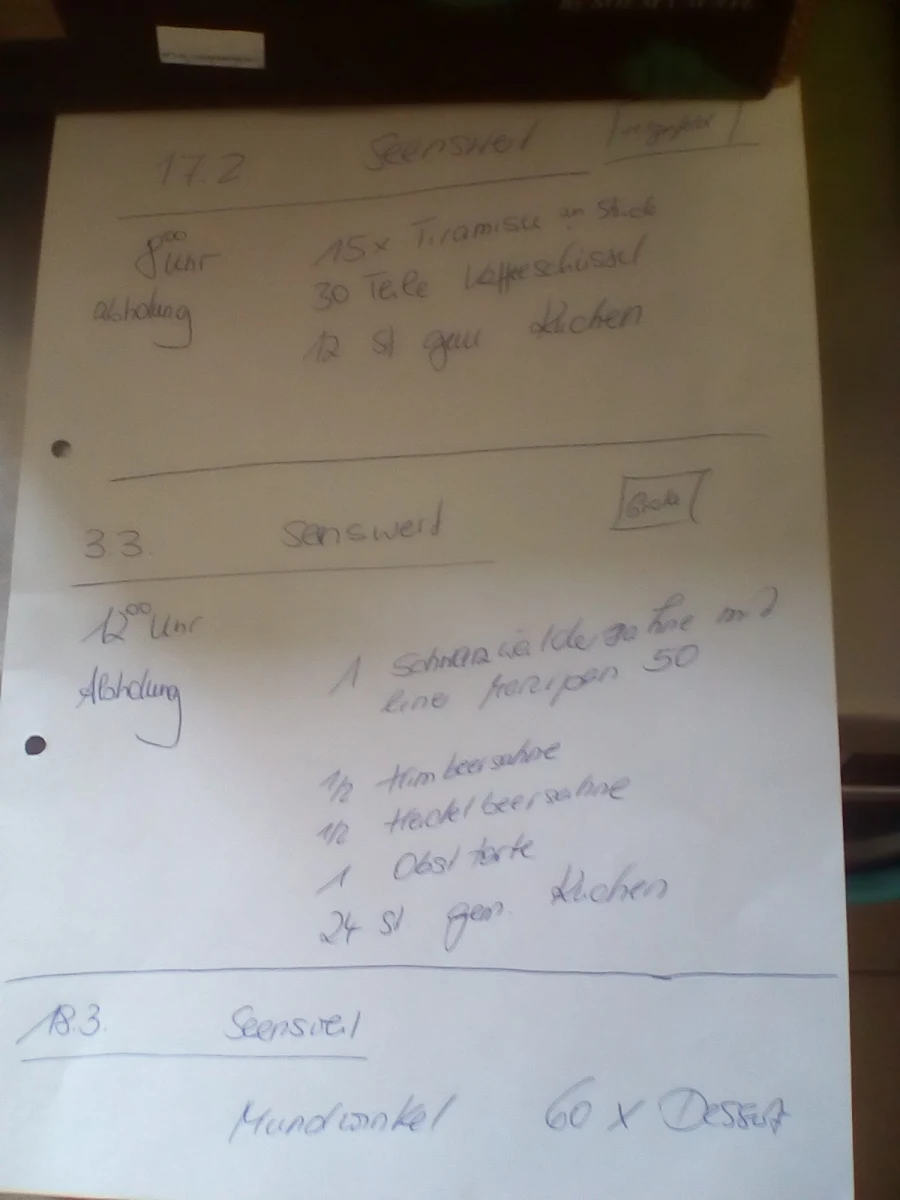 17.2 Seenswert
8 00 Uhr 15x Tiramisu in Stück
abholung 30 Teile Kaffeeschüssel
12 St gem Kuchen
3.3. Senswert
12 00 Uhr
Abholung 1 Schwarzwäldersahne mit
eine Marzipan 50
1/2 Himbeersahne
1/2 Heidelbeersahne
1 Obsttorte
24 St gem. Kuchen
18.3. Seenswert
Mundwinkel 60 x Dessert